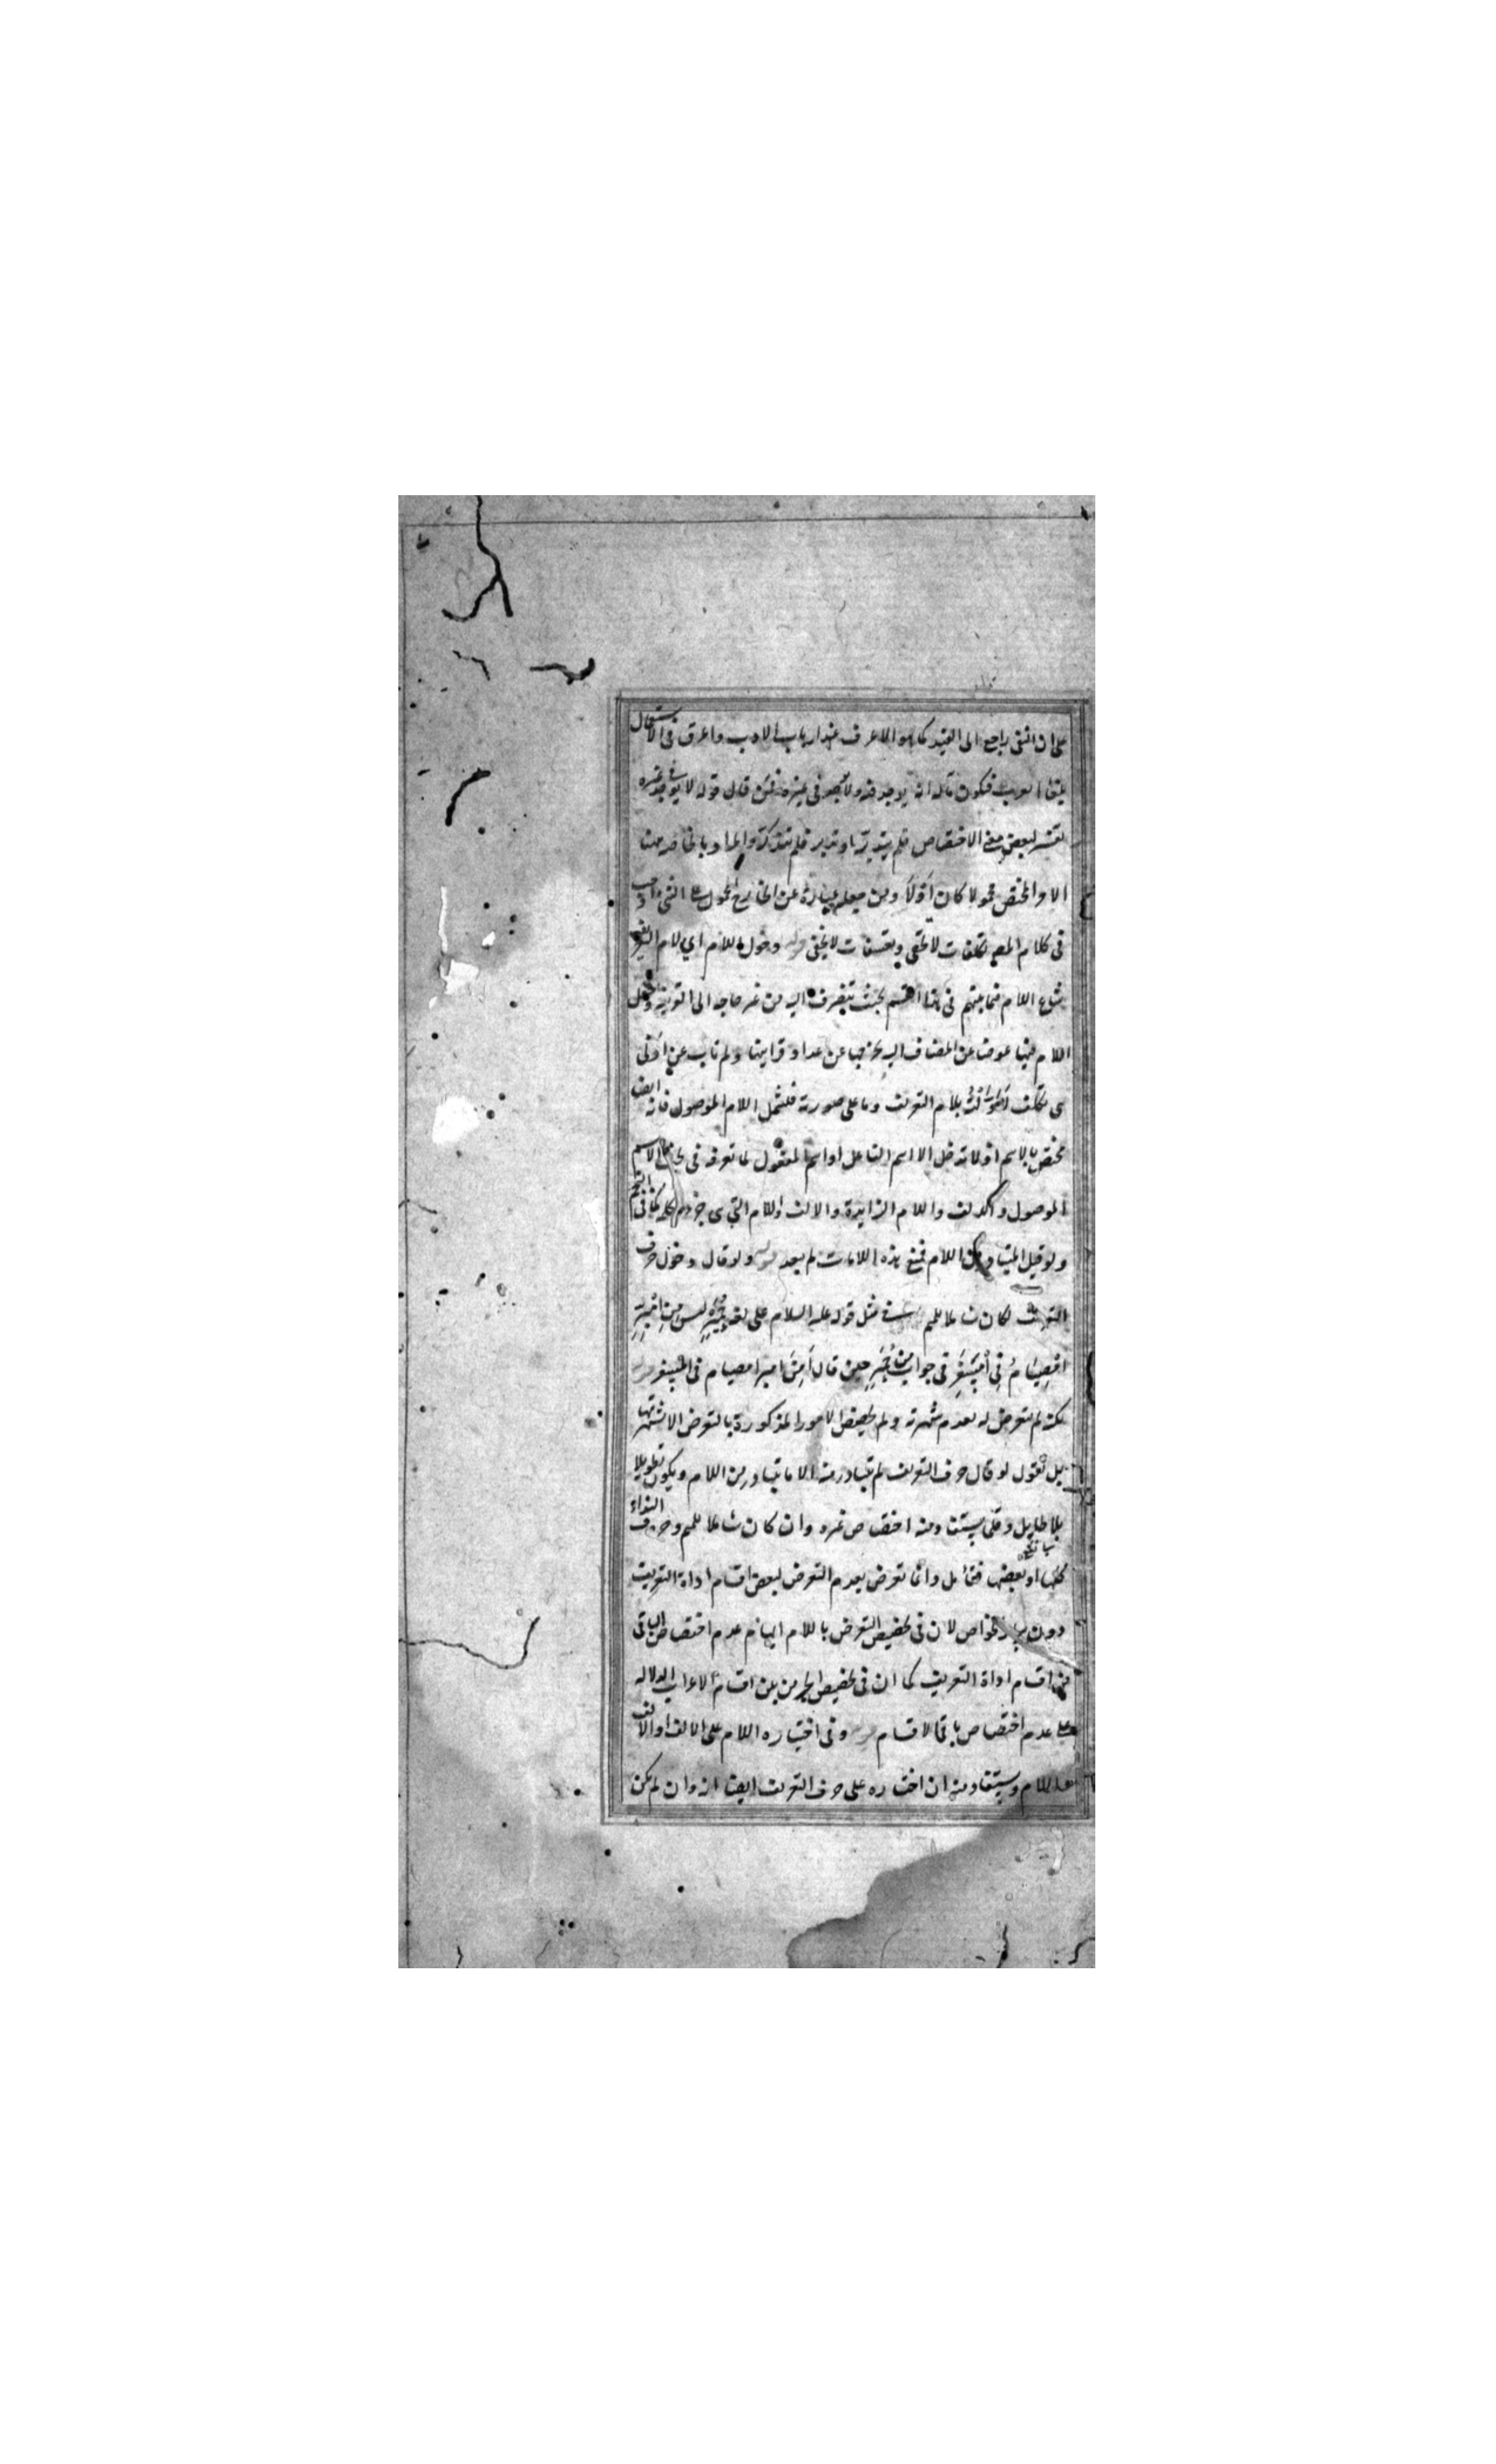 على ان النفى راجع الى القيد كما هو الاعرف عند ارباب الادب واعرق فى الاستعمال
فيكون قاله انه يوجد فيه ولا يوجد فى غيره فمن قال قوله لا يوجد فى غيره
لبعض معنى الاختصاص فلم يتدبر فلم يتذكر والمراد بالخاصة هنا
الامر المختص محمولا كان اولا ومن جعله عبارة عن الخارج المحول على الشئ
فى كلام المصـ تكلفات لا تخفى وتعسفات لا تخفى دخول اللام اي لام التعريف
شاع اللام فيما بينهم فى هذا القسم بحيث ينصرف اليه من غير حاجه الى التوصيف وجعل
اللام فيها عوضا عن المضاف اليه يخرجها عن عداد قرائنها ولم تاب عن
تكلف بلام التعريف وما على صورته فيشمل اللام الموصول فانه ايضا
مختص بالاسم اذ لا تدخل الا اسم الفاعل او اسم المفعول لما تعرفه فى بحث الاسم
الموصول وكذلك واللام الزايدة والالف واللام التى هى جزء كلمة كما فى النجم
ولو قيل المتبادر من اللام فجميع هذه اللامات لم يبعد ولو قال دخول حرف
التعريف لكان شاملا للميم فى مثل قوله عليه السلام على لغة حمير ليس من امبر
امصيام فى امسفر فى جواب من حمير حين قال امن امبر امصيام فى امسفر
لكنه لم يتعرض له لعدم شهرته ولم يخصص الامور المذكورة بالتعرض الا لشهرتها
بل نقول لو قال حرف التعريف لم يتبادر منه الا ما يتبادر من اللام ويكون تطويلا
بلا طايل وقلى يستفاد منه اختصاص غيره وان كان شاملا للميم وحرف النداء
كلها او بعضها فتأمل وانما تعرض بعدم التعرض لبعض اقسام اداة التعريف
دون ساير الخواص لان فى تخصيص التعرض باللام ايهام عدم اختصاص الباقى
من اقسام اداة التعريف كما ان فى تخصيص الجر من بين اقسام الاعراب الدلاله
على عدم اختصاص باقى الاقسام وفى اختياره اللام على الالف او الالف
مع اللام ويستفاد منه ان اختاره على حرف التعريف ايضا اذ وان لم يكن